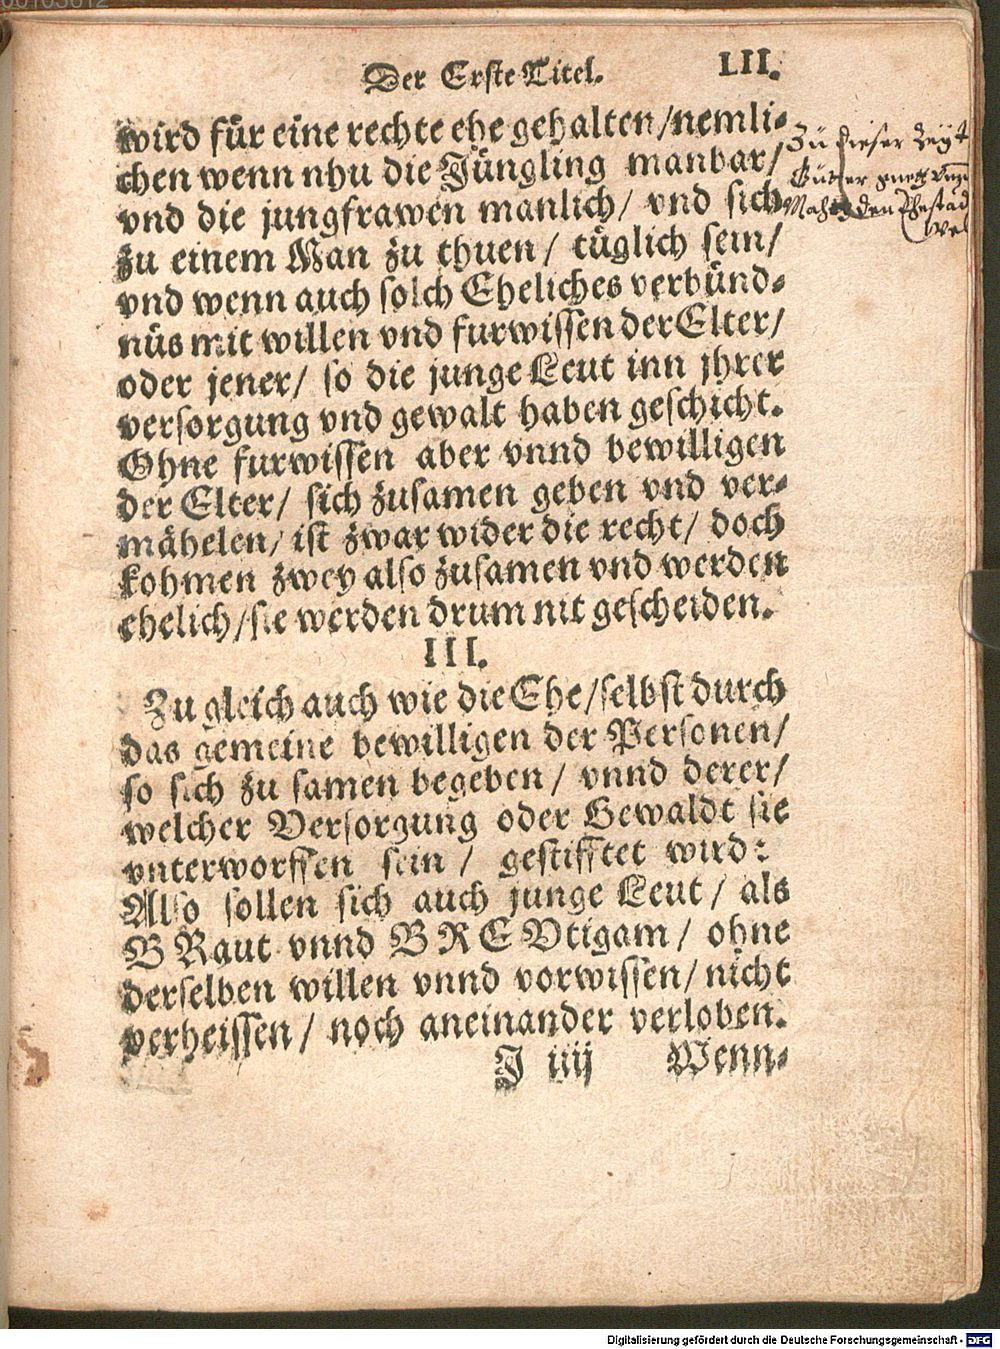 Der Erste Titel. LII.
wird für eine rechte ehe gehalten/nemli-
chen wenn nhu die Jüngling manbar/
vnd die jungfrawen manlich/ vnd sich
zu einem Man zu thuen/ tüglich sein/
vnd wenn auch solch Eheliches verbünd-
nüs mit willen vnd furwissen der Elter/
oder jener/ so die junge Leut inn jhrer
versorgung vnd gewalt haben geschicht.
Ohne furwissen aber vnnd bewilligen
der Elter/ sich zusamen geben vnd ver-
mähelen/ ist zwar wider die recht/ doch
kohmen zwey also zusamen vnd werden
ehelich/sie werden drum nit gescheiden.
III.
Zu gleich auch wie die Ehe/selbst durch
das gemeine bewilligen der Personen/
so sich zu samen begeben/ vnnd derer/
welcher Versorgung oder Gewaldt sie
vnterworffen sein/ gestifftet wird:
Also sollen sich auch junge Leut/ als
BRaut vnnd BREVtigam/ ohne
derselben willen vnnd vorwissen/ nicht
verheissen/ noch aneinander verloben.
J iiij Wenn-
Zu dieser Zeyt
den Ehestād
Digitalisierung gefördert durch die Deutsche Forschungsgemeinschaft - DFG